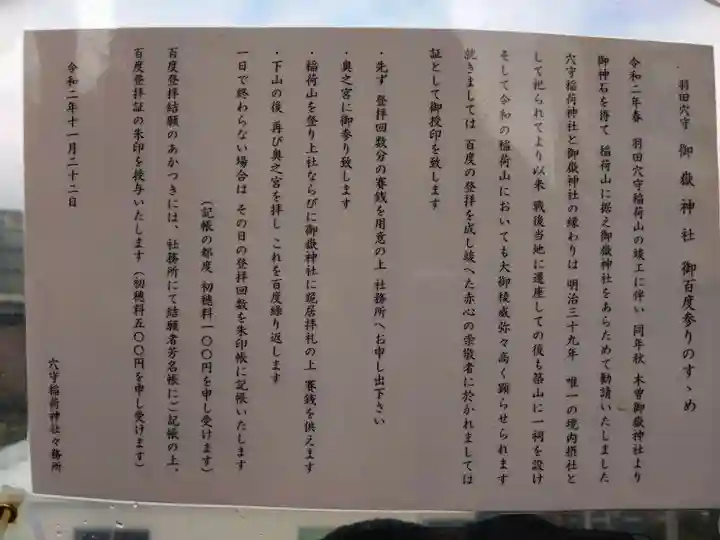 羽田穴守 御嶽神社 御百度参りのすゝめ
令和二年春 羽田穴守稲荷山の竣工に伴い 同年秋 木曽御嶽神社より
御神石を得て 稲荷山に据え御嶽神社をあらためて勧請いたしました
穴守稲荷神社と御嶽神社の縁わりは 明治三十九年 唯一の境内摂社と
して祀られてより以来 戦後当地に遷座しての後も築山に一祠を設け
そして令和の稲荷山においても大御稜威弥々高く顕らせられます
就きましては 百度の登拝を成し竣へた赤心の崇敬者に於かれましては
証として御授印を致します
・先ず 登拝回数分の賽銭を用意の上 社務所へお申し出下さい
・奥之宮に御参り致します
・稲荷山を登り上社ならびに御嶽神社に跪居拝礼の上 賽銭を供えます
・下山の後 再び奥之宮を拝し これを百度繰り返します
一日で終わらない場合は その日の登拝回数を朱印帳に記帳いたします
(記帳の都度 初穂料一〇〇円を申し受けます)
百度登拝結願のあかつきには、社務所にて結願者芳名帳にご記帳の上、
百度登拝証の朱印を授与いたします(初穂料五〇〇円を申し受けます)
令和二年十一月二十二日
穴守稲荷神社々務所